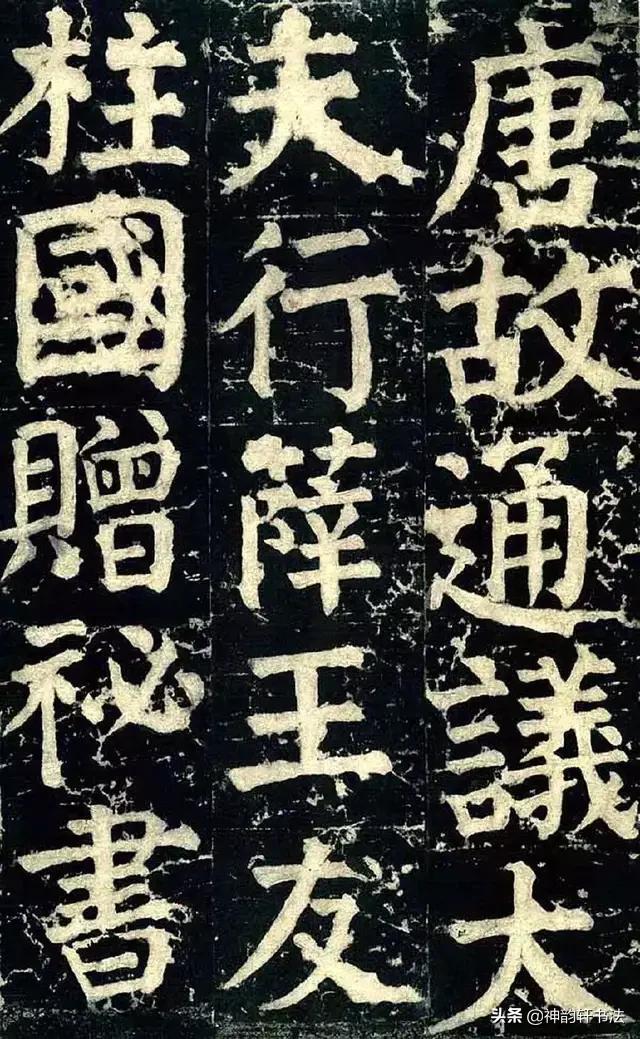 唐故通議大
夫行薛王友
柱國贈祕書
头条 @神韵轩书法